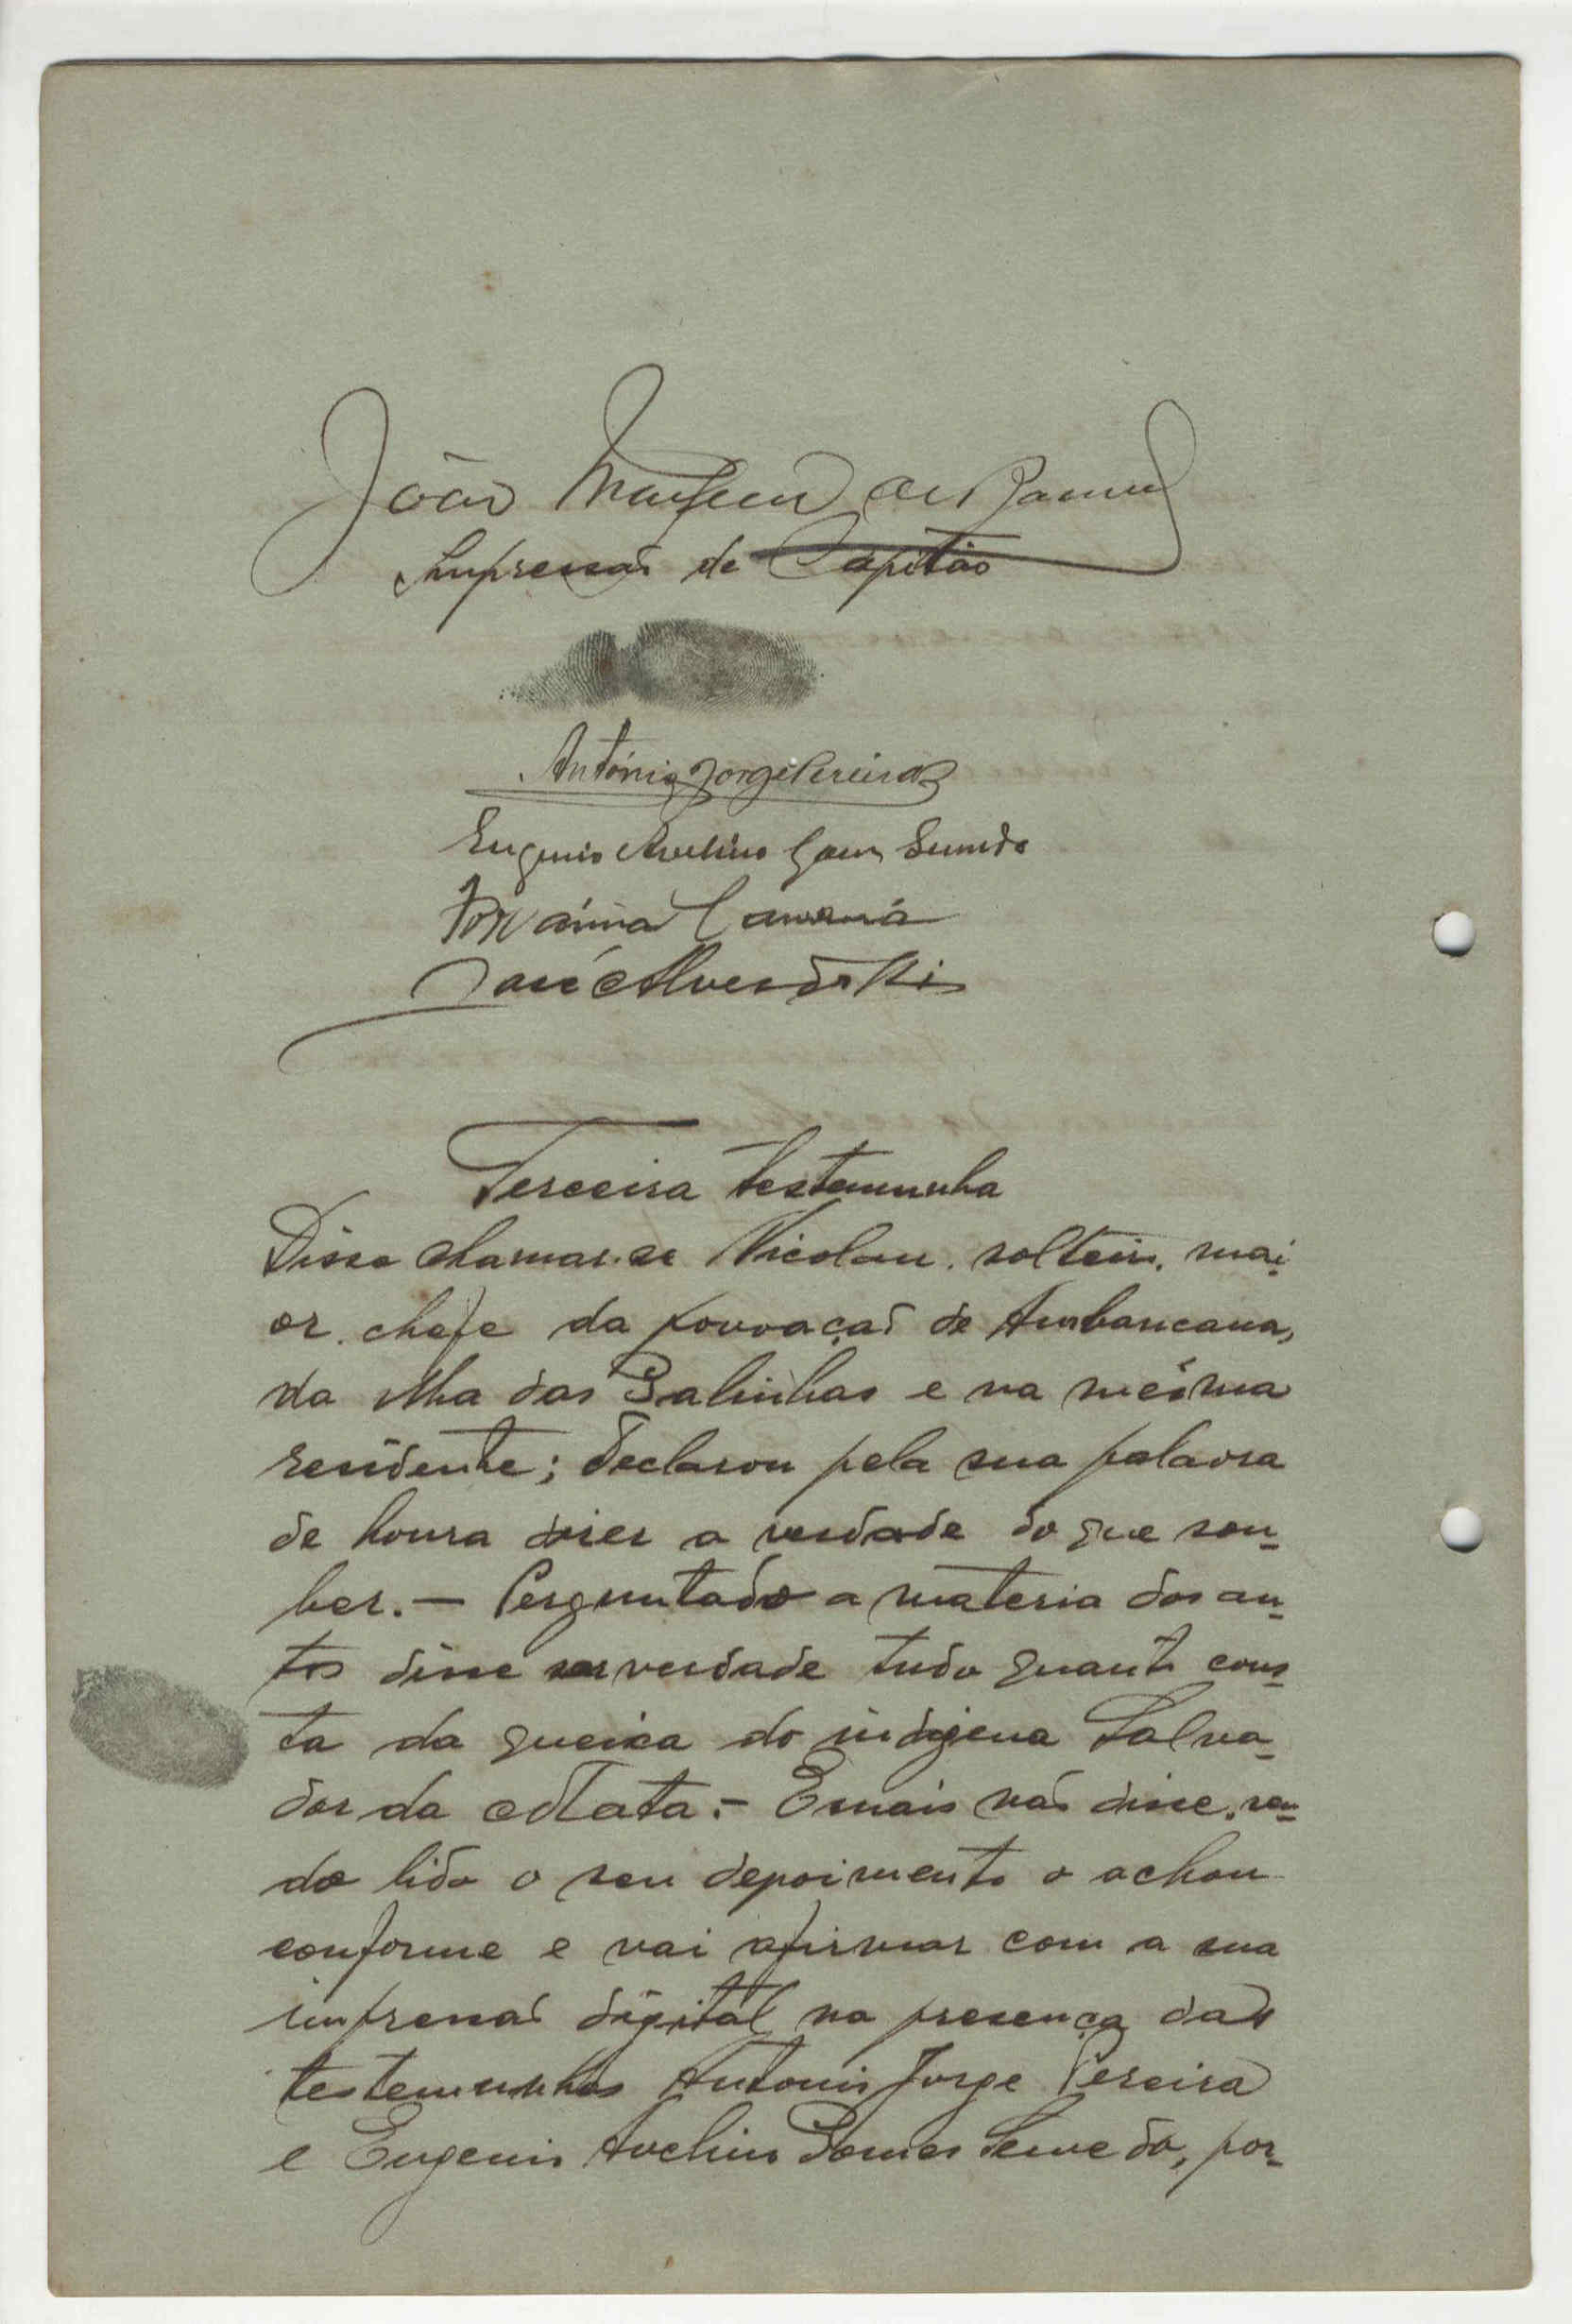 João
Impressão de Capitão
António Jorge Pereira
Eugenio Avelino Gomes Semedo
Camará
José Alves dos Reis
Terceira testemunha
Disse chamar-se Nicolau, solteiro, mai
or, chefe da povoação de Ambancana,
da ilha das Galinhas e na mésma
residente; declarou pela sua palavra
de honra dizer a verdade do que sou-
ber. — Perguntado a materia dos au-
tos disse ser verdade tudo quanto cons-
ta da queixa do indigena Salva-
dor da Mata.- E mais não disse, sen-
do lido o seu depoimento o achou
conforme e vai afirmar com a sua
impressão digital na presença das
testemunhas Antonio Jorge Pereira
e Eugenio Avelino Gomes Semedo, por-